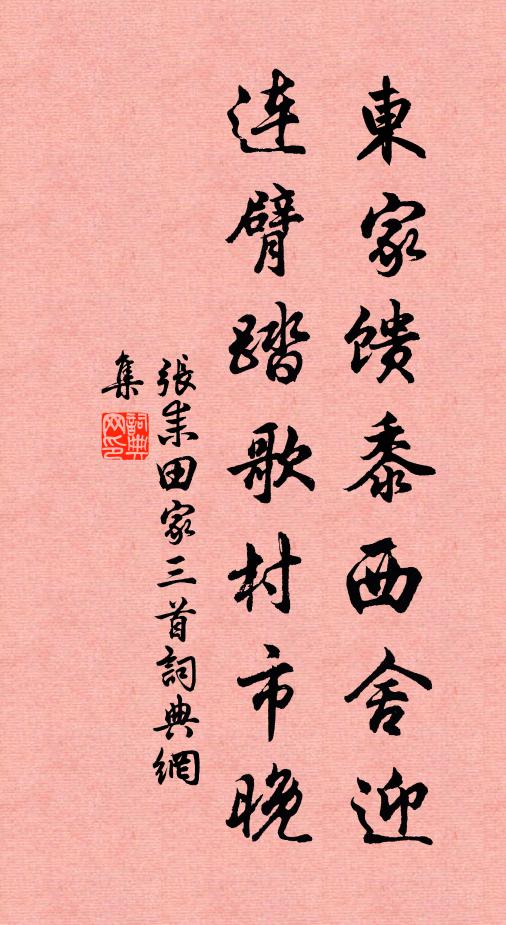 東家馈黍西舍迎
連臂踏歌村市晚
張耒田家三首詞典網
集
詞典网印